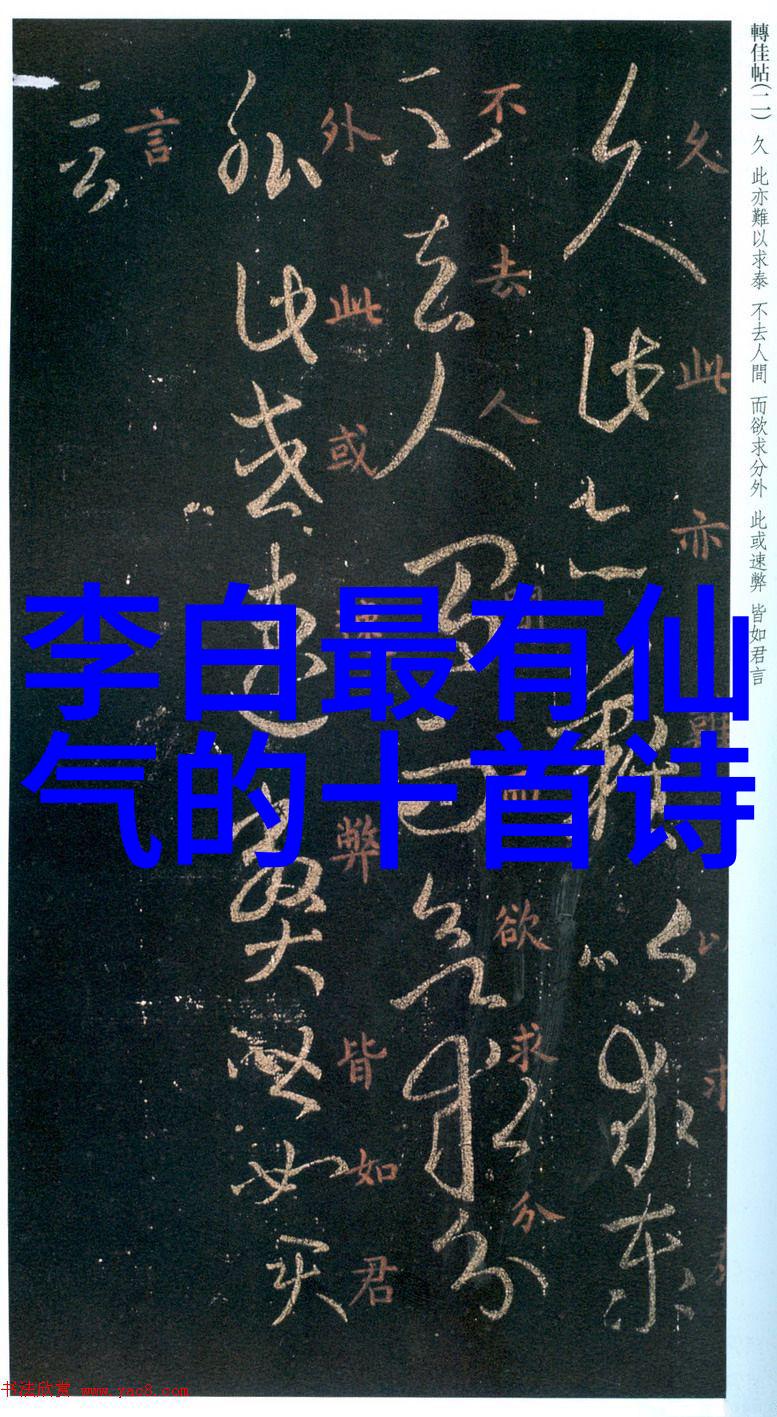 轉佳帖(二) 久 此亦難以求泰 不去人間 而欲求分外 此或速弊 皆如君言
久此亦難以求泰
不去人間而欲求分
外此或速弊皆如君
言
李白最有仙
气的十首诗
书法欣赏 www.yac8.com